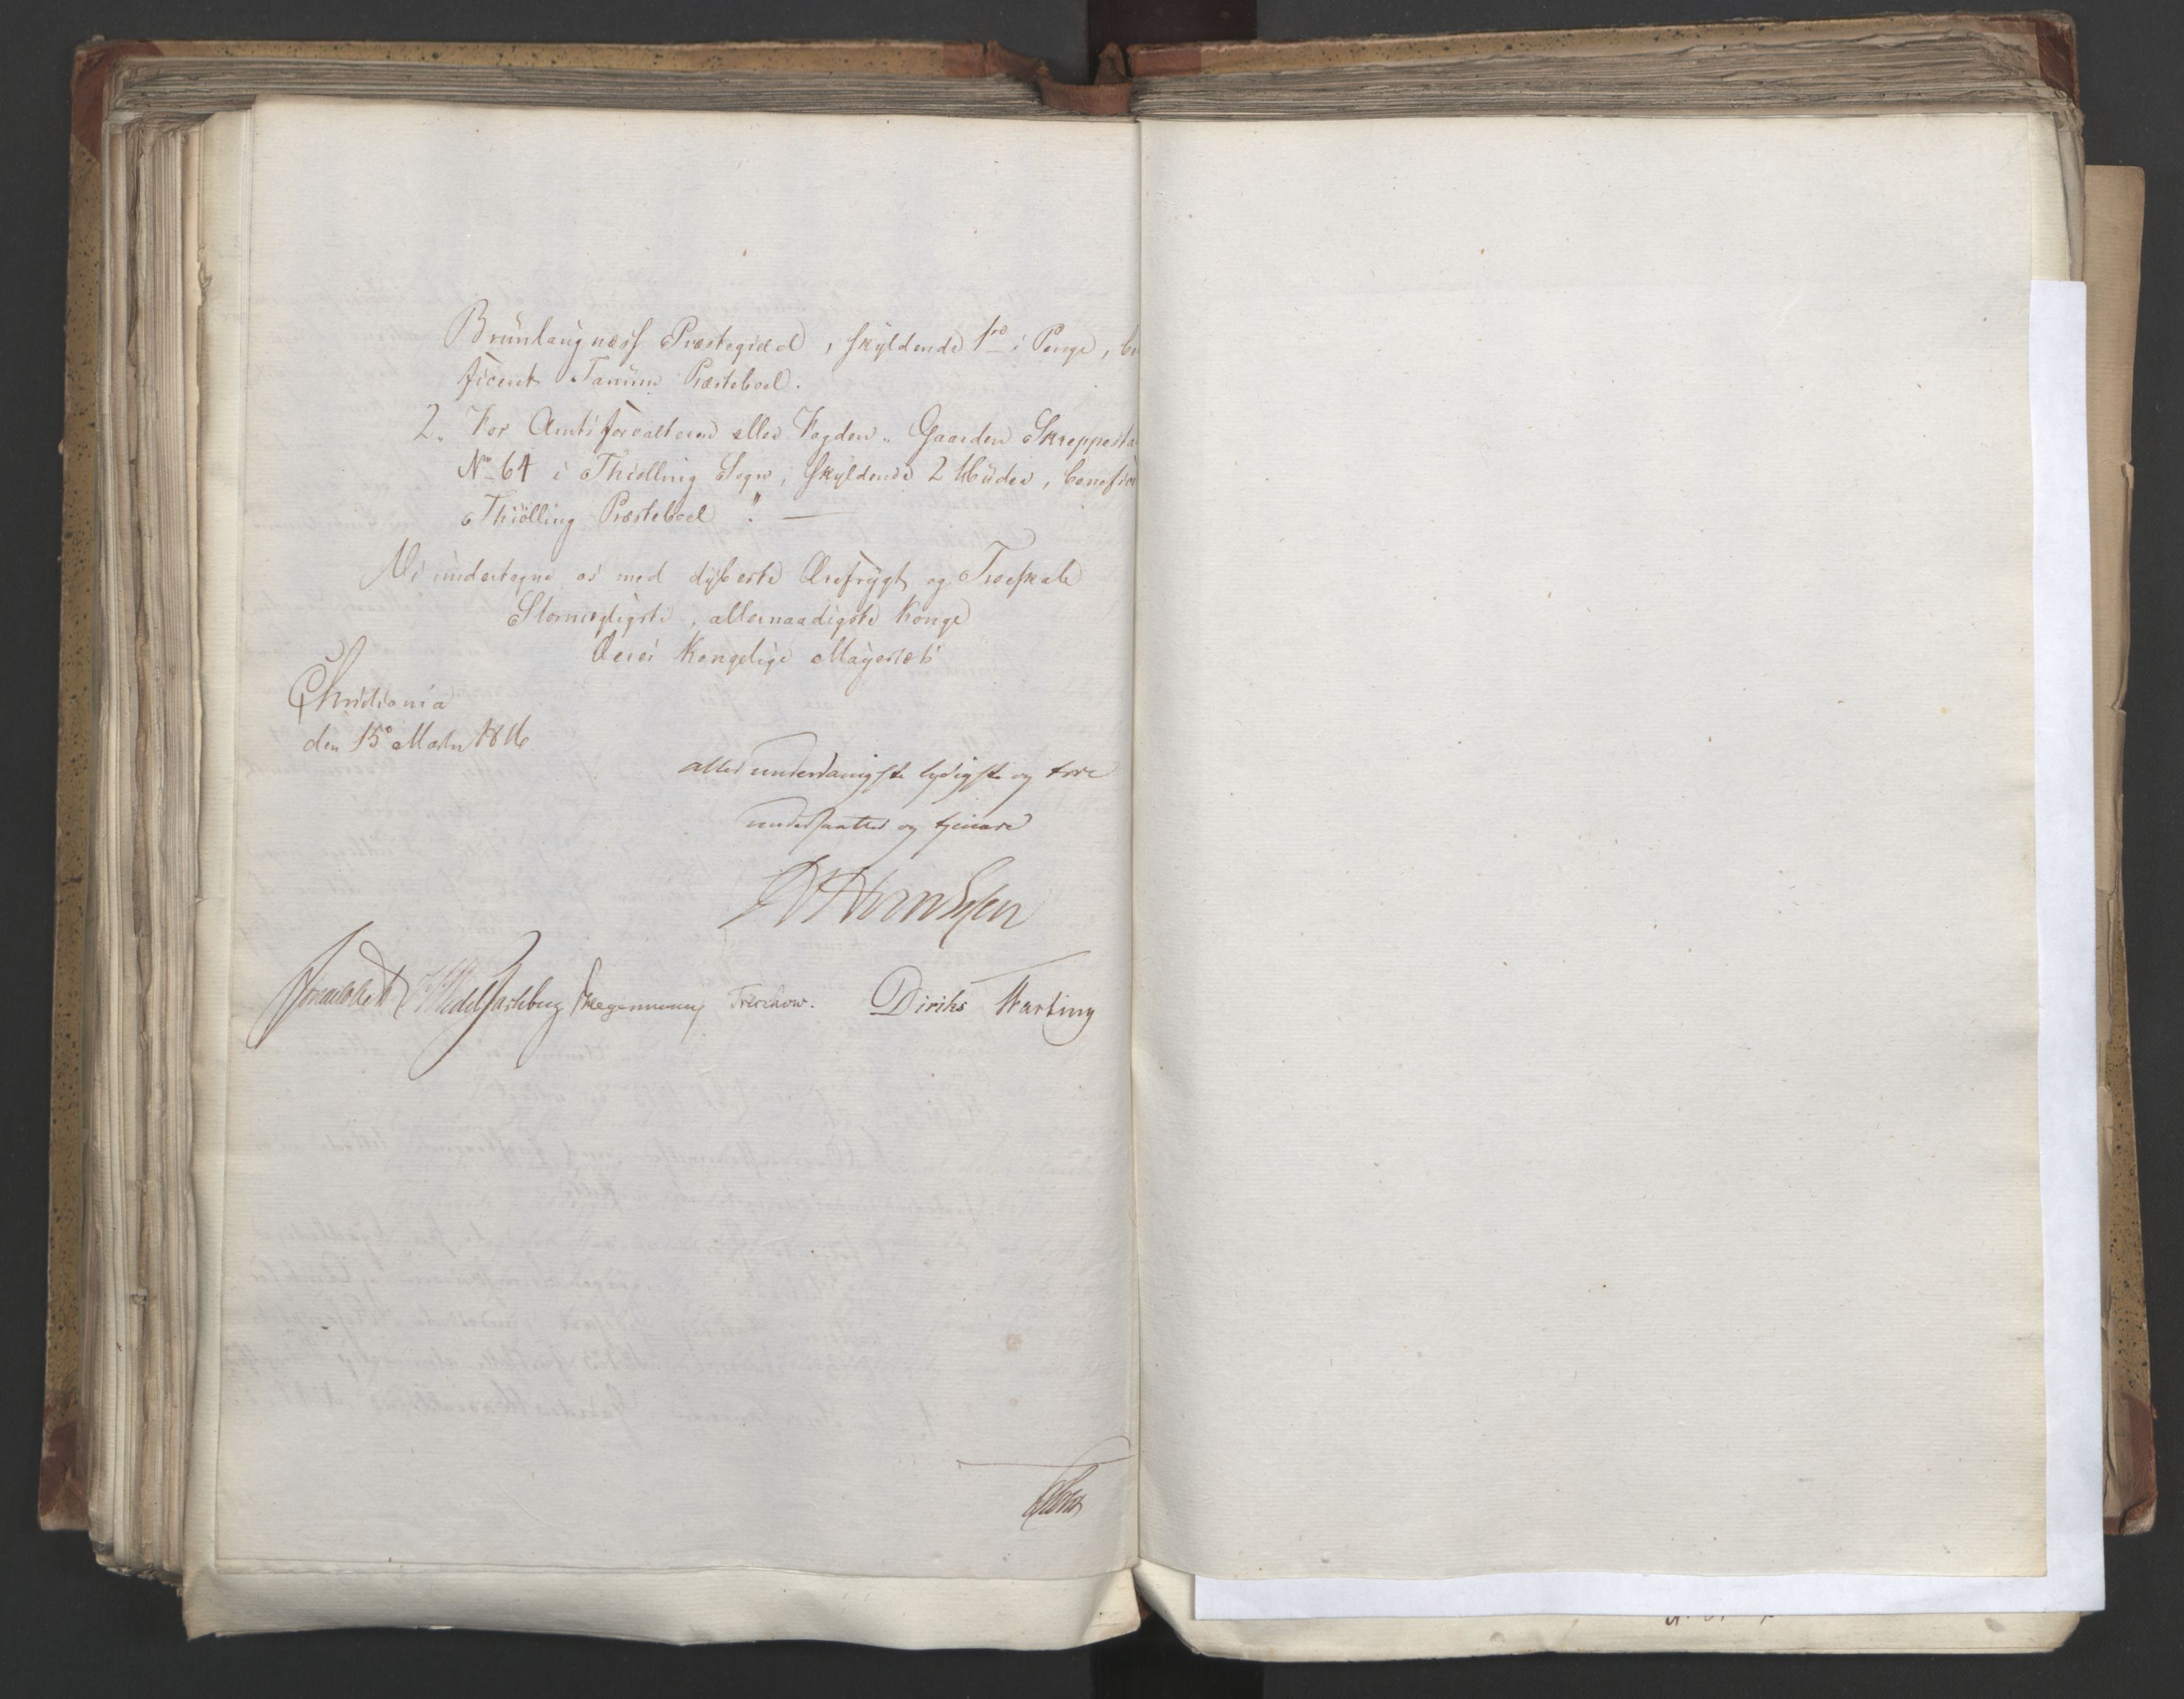 Brunlaugnæss Præstegield, skyldende 1 i Penge, be
ficeret Tanum Præsteboel.
2. For Amtsforvalteren eller Fogden „ Gaarden Skreppesta
No 64 i Thiølling Sogn, skyldende 2 Huder, benefice
Thiølling Præsteboel ". —
Vi undertegne os med dybeste Ærefrygt og Troeskab
Stormægtigste, allernaadigste Konge
Deres Kongelige Mayestæts
Christiania
den 15de Marts 1816
allerunderdanigste lydigste og troe
undersaatter og tjenere
Sommerhielm Wedel Jarlsberg Hegermann Treschow. Diriks Harbing